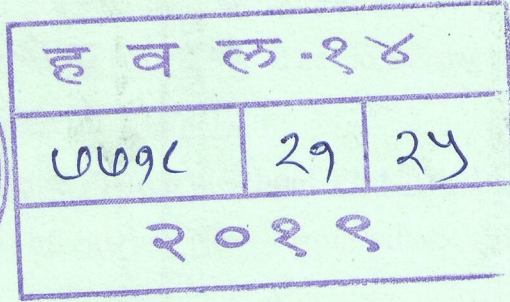 ह व ल-१४
७७१८ २१ २५
२०१९